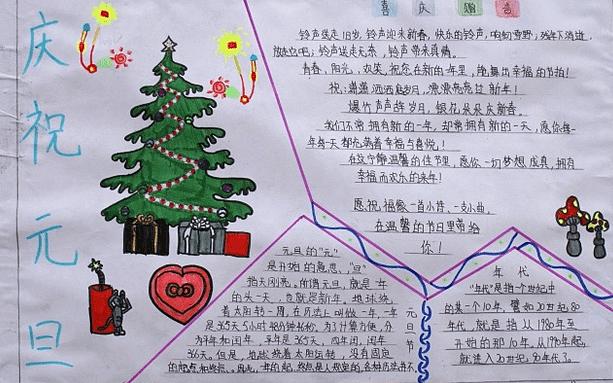 庆
祝
元
旦
喜
庆
铃声送走旧岁，铃声迎来新春，快乐的铃声，响彻云野，残年不消逝，
放走吧；铃声送走无奈，铃声带来真情。
青春，阳光，欢笑，祝您在新的年里，能舞出幸福的节拍！
祝：潇潇洒洒
爆竹声声辞岁月，银花朵朵庆新春。
我们不常拥有新的一年，却常拥有新的一天，愿你每一
年每一天都充满着幸福与喜悦！
在这宁静温馨的佳节里，愿你一切梦想成真，拥有
幸福而欢乐的来年！
愿祝福像一首小诗，一支小曲，
在温馨的节日里带给
你！
元旦的"元"
是开始的意思，"旦"
指天刚亮，所谓元旦，就是一年
的头一天，也就是新年。地球绕
着太阳转一周，在历法上叫做一年，一年
是365天5小时48分46秒，为了计算方便，分
为平年和闰年，平年是365天，四年闰，闰年
366天。但是，地球绕着太阳运转，没有固定
的起点和终点。因此，一年的起、终点是人规定的，各种历法并不
元
旦
节
年 代
"年代"是指一个世纪中
的某一个10年，譬如20世纪80
年代，就是指从1980年至
开始的那10年，从1990年起，
就进入20世纪90年代了。